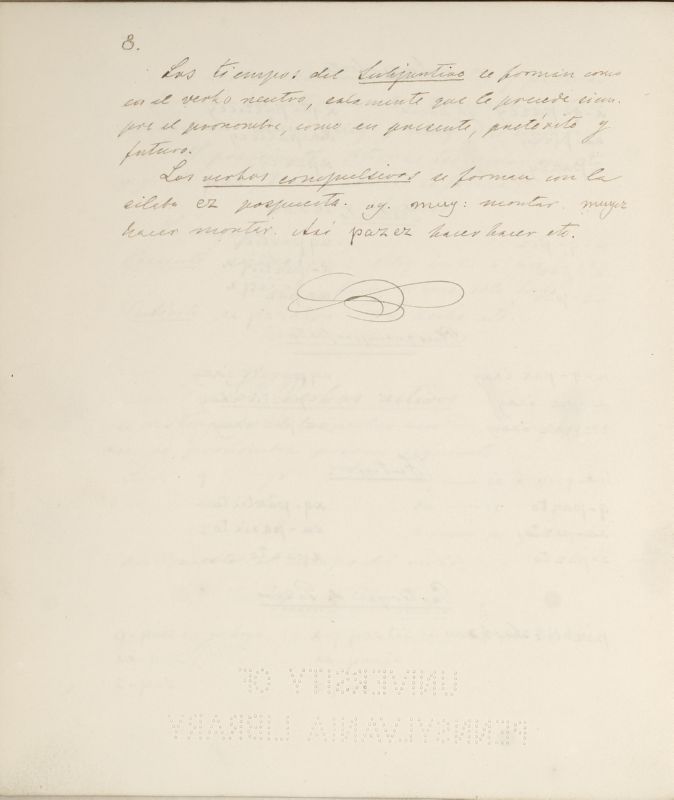 8.
Los tiempos del Subjuntivo se forman como
en el verbo neutro, solamente que le precede siem-
pre el pronombre, como en presente, pretérito y
futuro.
Los verbos compulsivos se forman con la
silaba ez pospuesta. ej. muy: montar. muyez
hacer montar. Asi pazez hacer hacer etc.
UNIVERSITY OF
PENNSYLVANIA LIBRARY